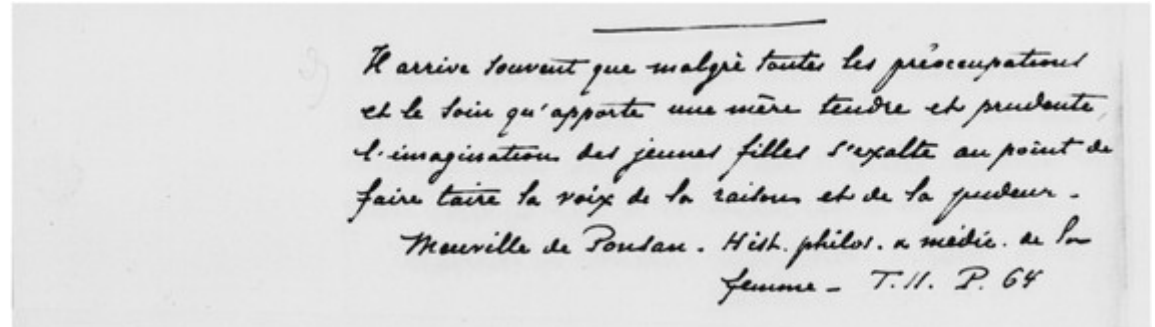 Il arrive souvent que malgré toutes les préoccupations
et le soin qu'apporte une mère tendre et prudente,
l'imagination des jeunes filles s'exalte au point de
faire taire la voix de la raison et de la pudeur -
Menville de Ponsan. Hist. philos. & médic. de la
femme - T. II. P. 64